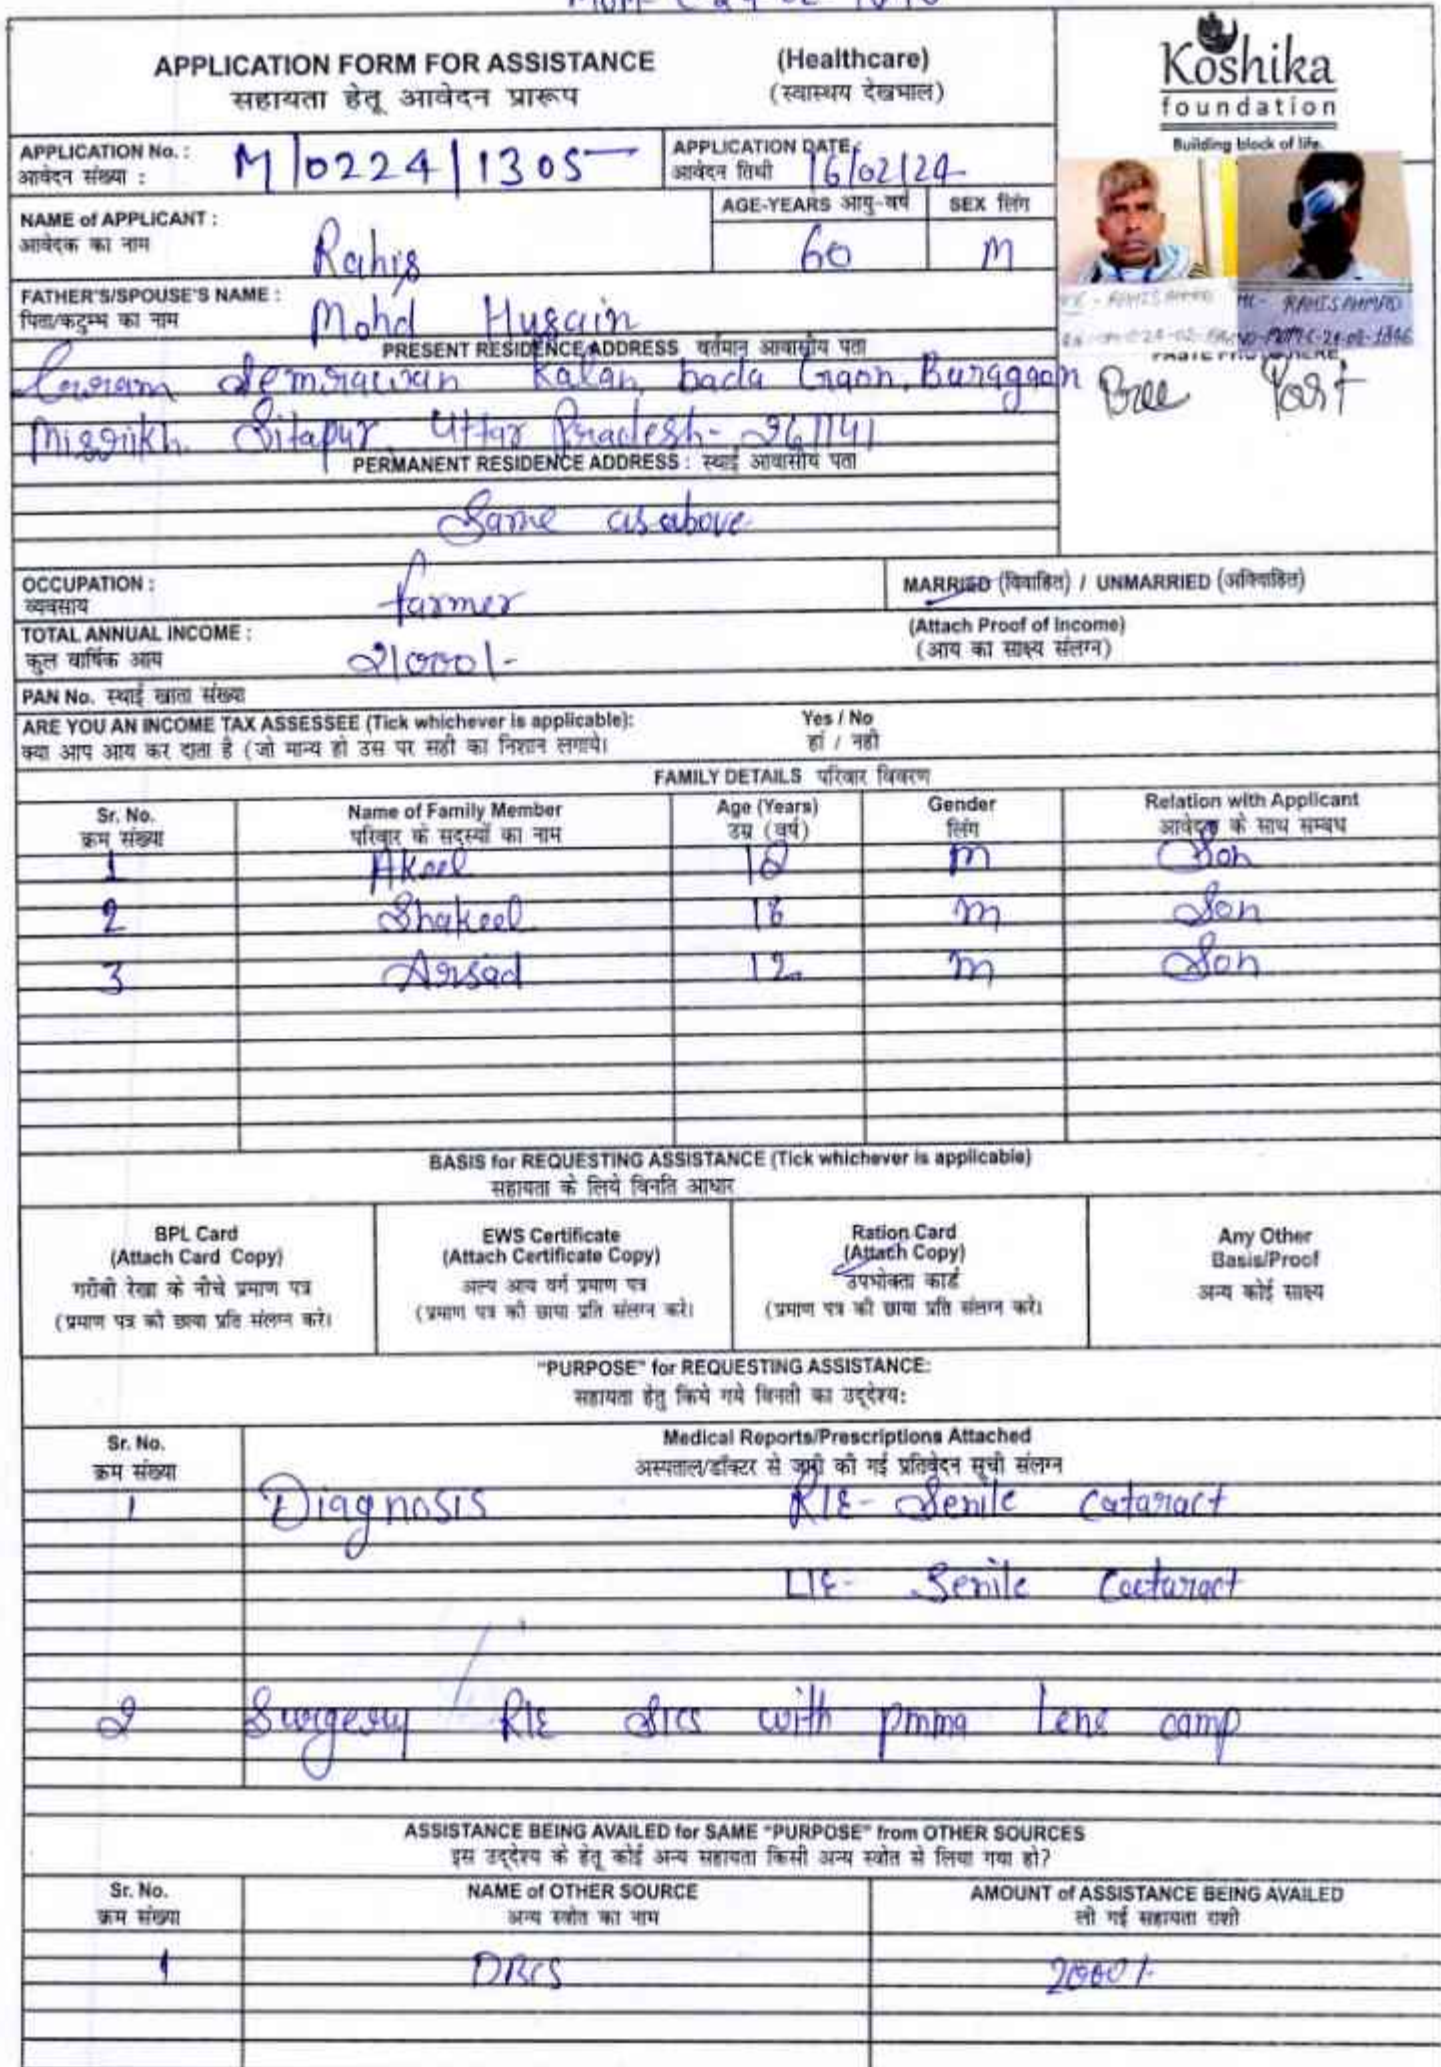 APPLICATION FORM FOR ASSISTANCE (Healthcare)
सहायता हेतू आवेदन प्रारूप (स्वास्थय देखभाल)
Koshika
foundation
Building block of life.
APPLICATION No. : M/0224/1305
आवेदन संख्या :
APPLICATION DATE
आवेदन तिथी 16/02/24
NAME of APPLICANT : Rahis
आवेदक का नाम
AGE-YEARS आयु-वर्ष 60
SEX लिंग M
RAHIS AHMAD
FATHER'S/SPOUSE'S NAME : Mohd Husain
पिता/कटुम्भ का नाम
PASTE PHOTO HERE
Pree Post
PRESENT RESIDENCE ADDRESS वर्तमान आवासीय पता
Kalan, bada Gaon, Buragaon
Missrikh. Sitapur Uttar Pradesh- 261141
PERMANENT RESIDENCE ADDRESS : स्थाई आवासीय पता
Same as above
OCCUPATION : farmer
व्यवसाय
MARRIED (विवाहित) / UNMARRIED (अविवाहित)
TOTAL ANNUAL INCOME : 21000/-
कुल वार्षिक आय
(Attach Proof of Income)
(आय का साक्ष्य संलग्न)
PAN No. स्थाई खाता संख्या
ARE YOU AN INCOME TAX ASSESSEE (Tick whichever is applicable): Yes / No
क्या आप आय कर दाता है (जो मान्य हो उस पर सही का निशान लगाये। हां / नही
FAMILY DETAILS परिवार विवरण
Sr. No. Name of Family Member Age (Years) Gender Relation with Applicant
क्रम संख्या परिवार के सदस्यों का नाम उम्र (वर्ष) लिंग आवेदक के साथ सम्बध
1 Akeel M Son
2 Shakeel 18 M Son
3 Arsad 12 M Son
BASIS for REQUESTING ASSISTANCE (Tick whichever is applicable)
सहायता के लिये विनति आधार
BPL Card
(Attach Card Copy)
गरीबी रेखा के नीचे प्रमाण पत्र
(प्रमाण पत्र की छाया प्रति संलग्न करे।
EWS Certificate
(Attach Certificate Copy)
अल्प आय वर्ग प्रमाण पत्र
(प्रमाण पत्र की छाया प्रति संलग्न करे।
Ration Card
(Attach Copy)
उपभोक्ता कार्ड
(प्रमाण पत्र की छाया प्रति संलग्न करे।
Any Other
Basis/Proof
अन्य कोई साक्ष्य
"PURPOSE" for REQUESTING ASSISTANCE:
सहायता हेतु किये गये विनती का उद्देश्य:
Sr. No. Medical Reports/Prescriptions Attached
क्रम संख्या अस्पताल/डॉक्टर से जारी की गई प्रतिवेदन सूची संलग्न
1 Diagnosis R/E- Senile Cataract
L/E- Senile Cataract
2 Surgery R/E SICS with pmma Lens camp
ASSISTANCE BEING AVAILED for SAME "PURPOSE" from OTHER SOURCES
इस उद्देश्य के हेतू कोई अन्य सहायता किसी अन्य स्त्रोत से लिया गया हो?
Sr. No. NAME of OTHER SOURCE AMOUNT of ASSISTANCE BEING AVAILED
क्रम संख्या अन्य स्त्रोत का नाम ली गई सहायता राशी
1 DBCS 2000/-